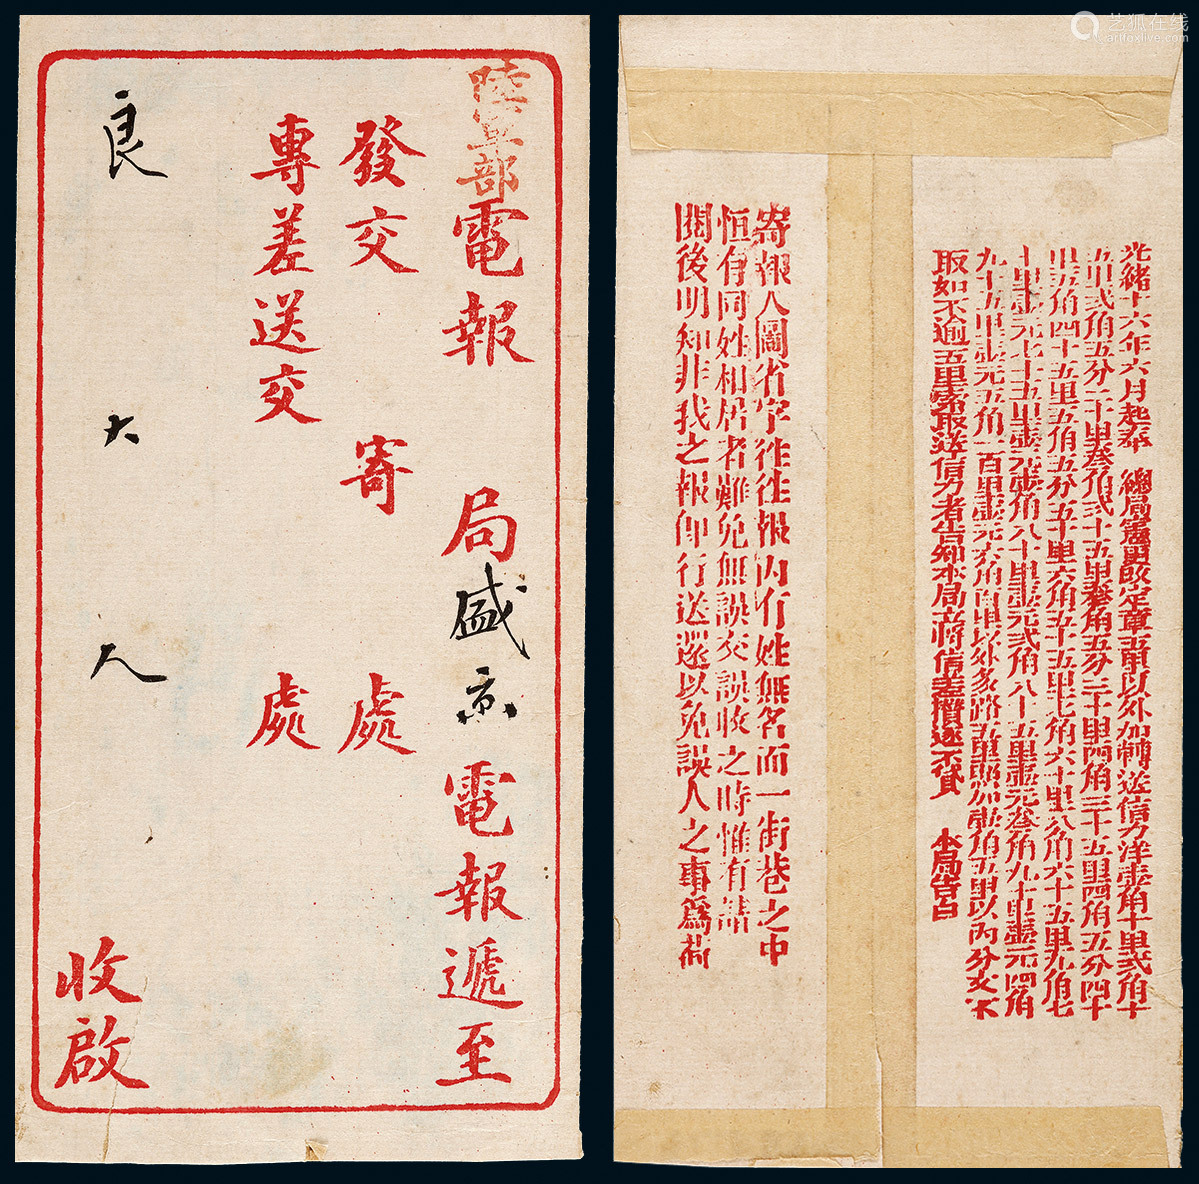 陸軍部電報局盛京電報遞至
發交寄處
專差送交處
良大人
收啟
光緒十六年六月起奉總局憲更改定章五里以外加轉送信力洋壹角十里弍角十
五里弍角五分二十里叁角弍十五里叁角五分三十里四角三十五里四角五分四十
里五角四十五里五角五分五十里六角五十五里七角六十里八角六十五里九角七
十里壹元七十五里壹元壹角八十里壹元弍角八十五里壹元叁角九十里壹元四角
九十五里壹元五角一百里壹元六角百里以外多路五里照加壹角五里以內分文不
取如不逾五里索取送信力者告知本局立將信差攆逐不貸本局告白
寄報人圖省字往往報內有姓無名而一街巷之中
恒有同姓相居者難免無誤交誤收之時惟有請
閱後明知非我之報仰行送還以免誤人之事為荷
艺狐在线
artfoxlive.com